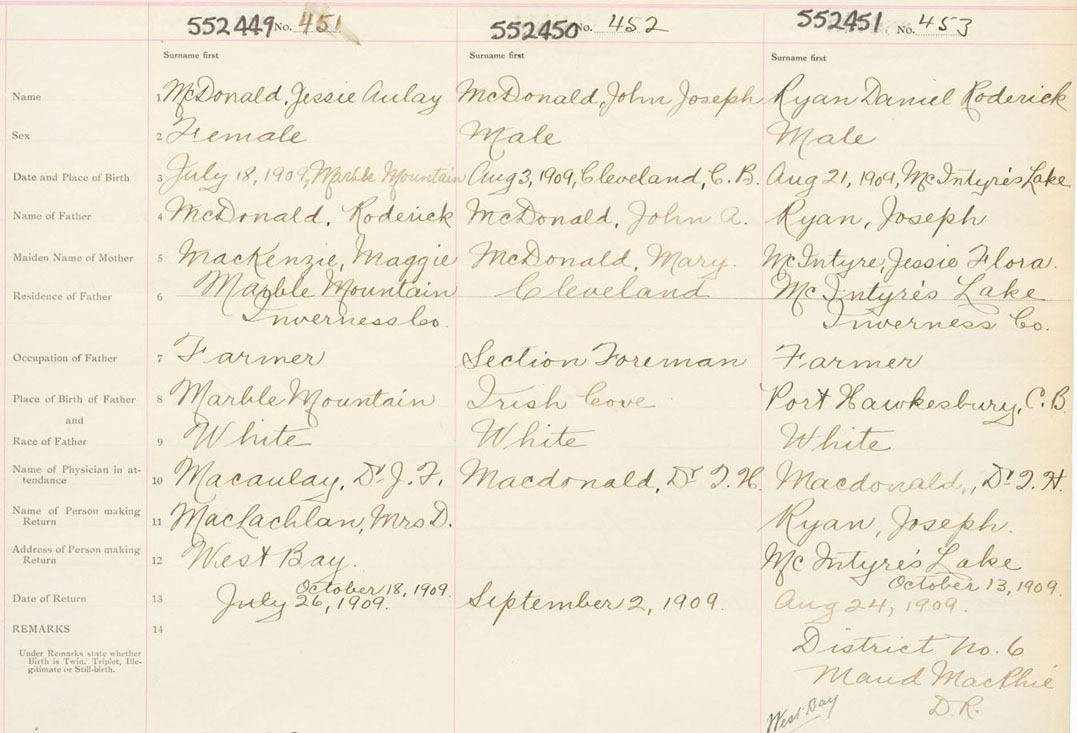 552449 No. 451 552450 No. 452 552451 No. 453
Surname first Surname first Surname first
Name 1 McDonald, Jessie Aulay McDonald, John Joseph Ryan Daniel Roderick
Sex 2 Female Male Male
Date and Place of Birth 3 July 18, 1909, Marble Mountain Aug 3, 1909, Cleveland, C.B. Aug 21, 1909, McIntyre's Lake
Name of Father 4 McDonald, Roderick McDonald, John A. Ryan, Joseph
Maiden Name of Mother 5 MacKenzie, Maggie McDonald, Mary. McIntyre, Jessie Flora.
Residence of Father 6 Marble Mountain Cleveland McIntyre's Lake
Inverness Co. Inverness Co.
Occupation of Father 7 Farmer Section Foreman Farmer
Place of Birth of Father 8 Marble Mountain Irish Cove Port Hawkesbury, C.B.
and
Race of Father 9 White White White
Name of Physician in at-
tendance 10 Macaulay, Dr. J. F. Macdonald, Dr T. H. Macdonald,, Dr. T. H.
Name of Person making
Return 11 MacLachlan, Mrs D. Ryan, Joseph.
Address of Person making
Return 12 West Bay. McIntyre's Lake
October 18, 1909. October 13, 1909.
Date of Return 13 July 26, 1909. September 2, 1909. Aug 24, 1909.
REMARKS 14
Under Remarks state whether
Birth is Twin, Triplet, Ille-
gitimate or Still-birth.
District No. 6
Maud MacPhie
D.R.
West Bay